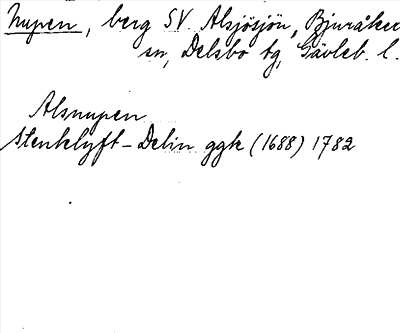 Nupen, berg SV. Alsjösjön, Bjuråker
sn, Delsbo tg, Gävleb. l.
Alsnupen
Stenklyft-Delin ggk (1688) 1782